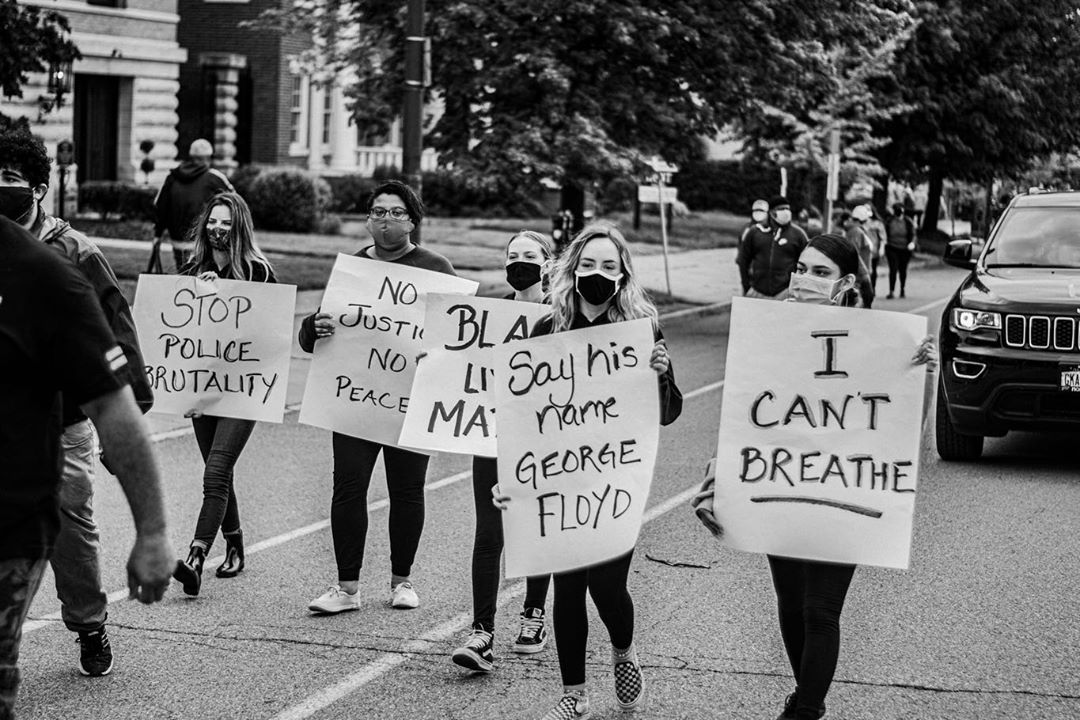 STOP
POLICE
BRUTALITY
NO
JUSTIC
NO
PEACE
BLA
LI
MAT
Say his
name
GEORGE
FLOYD
I
CAN'T
BREATHE